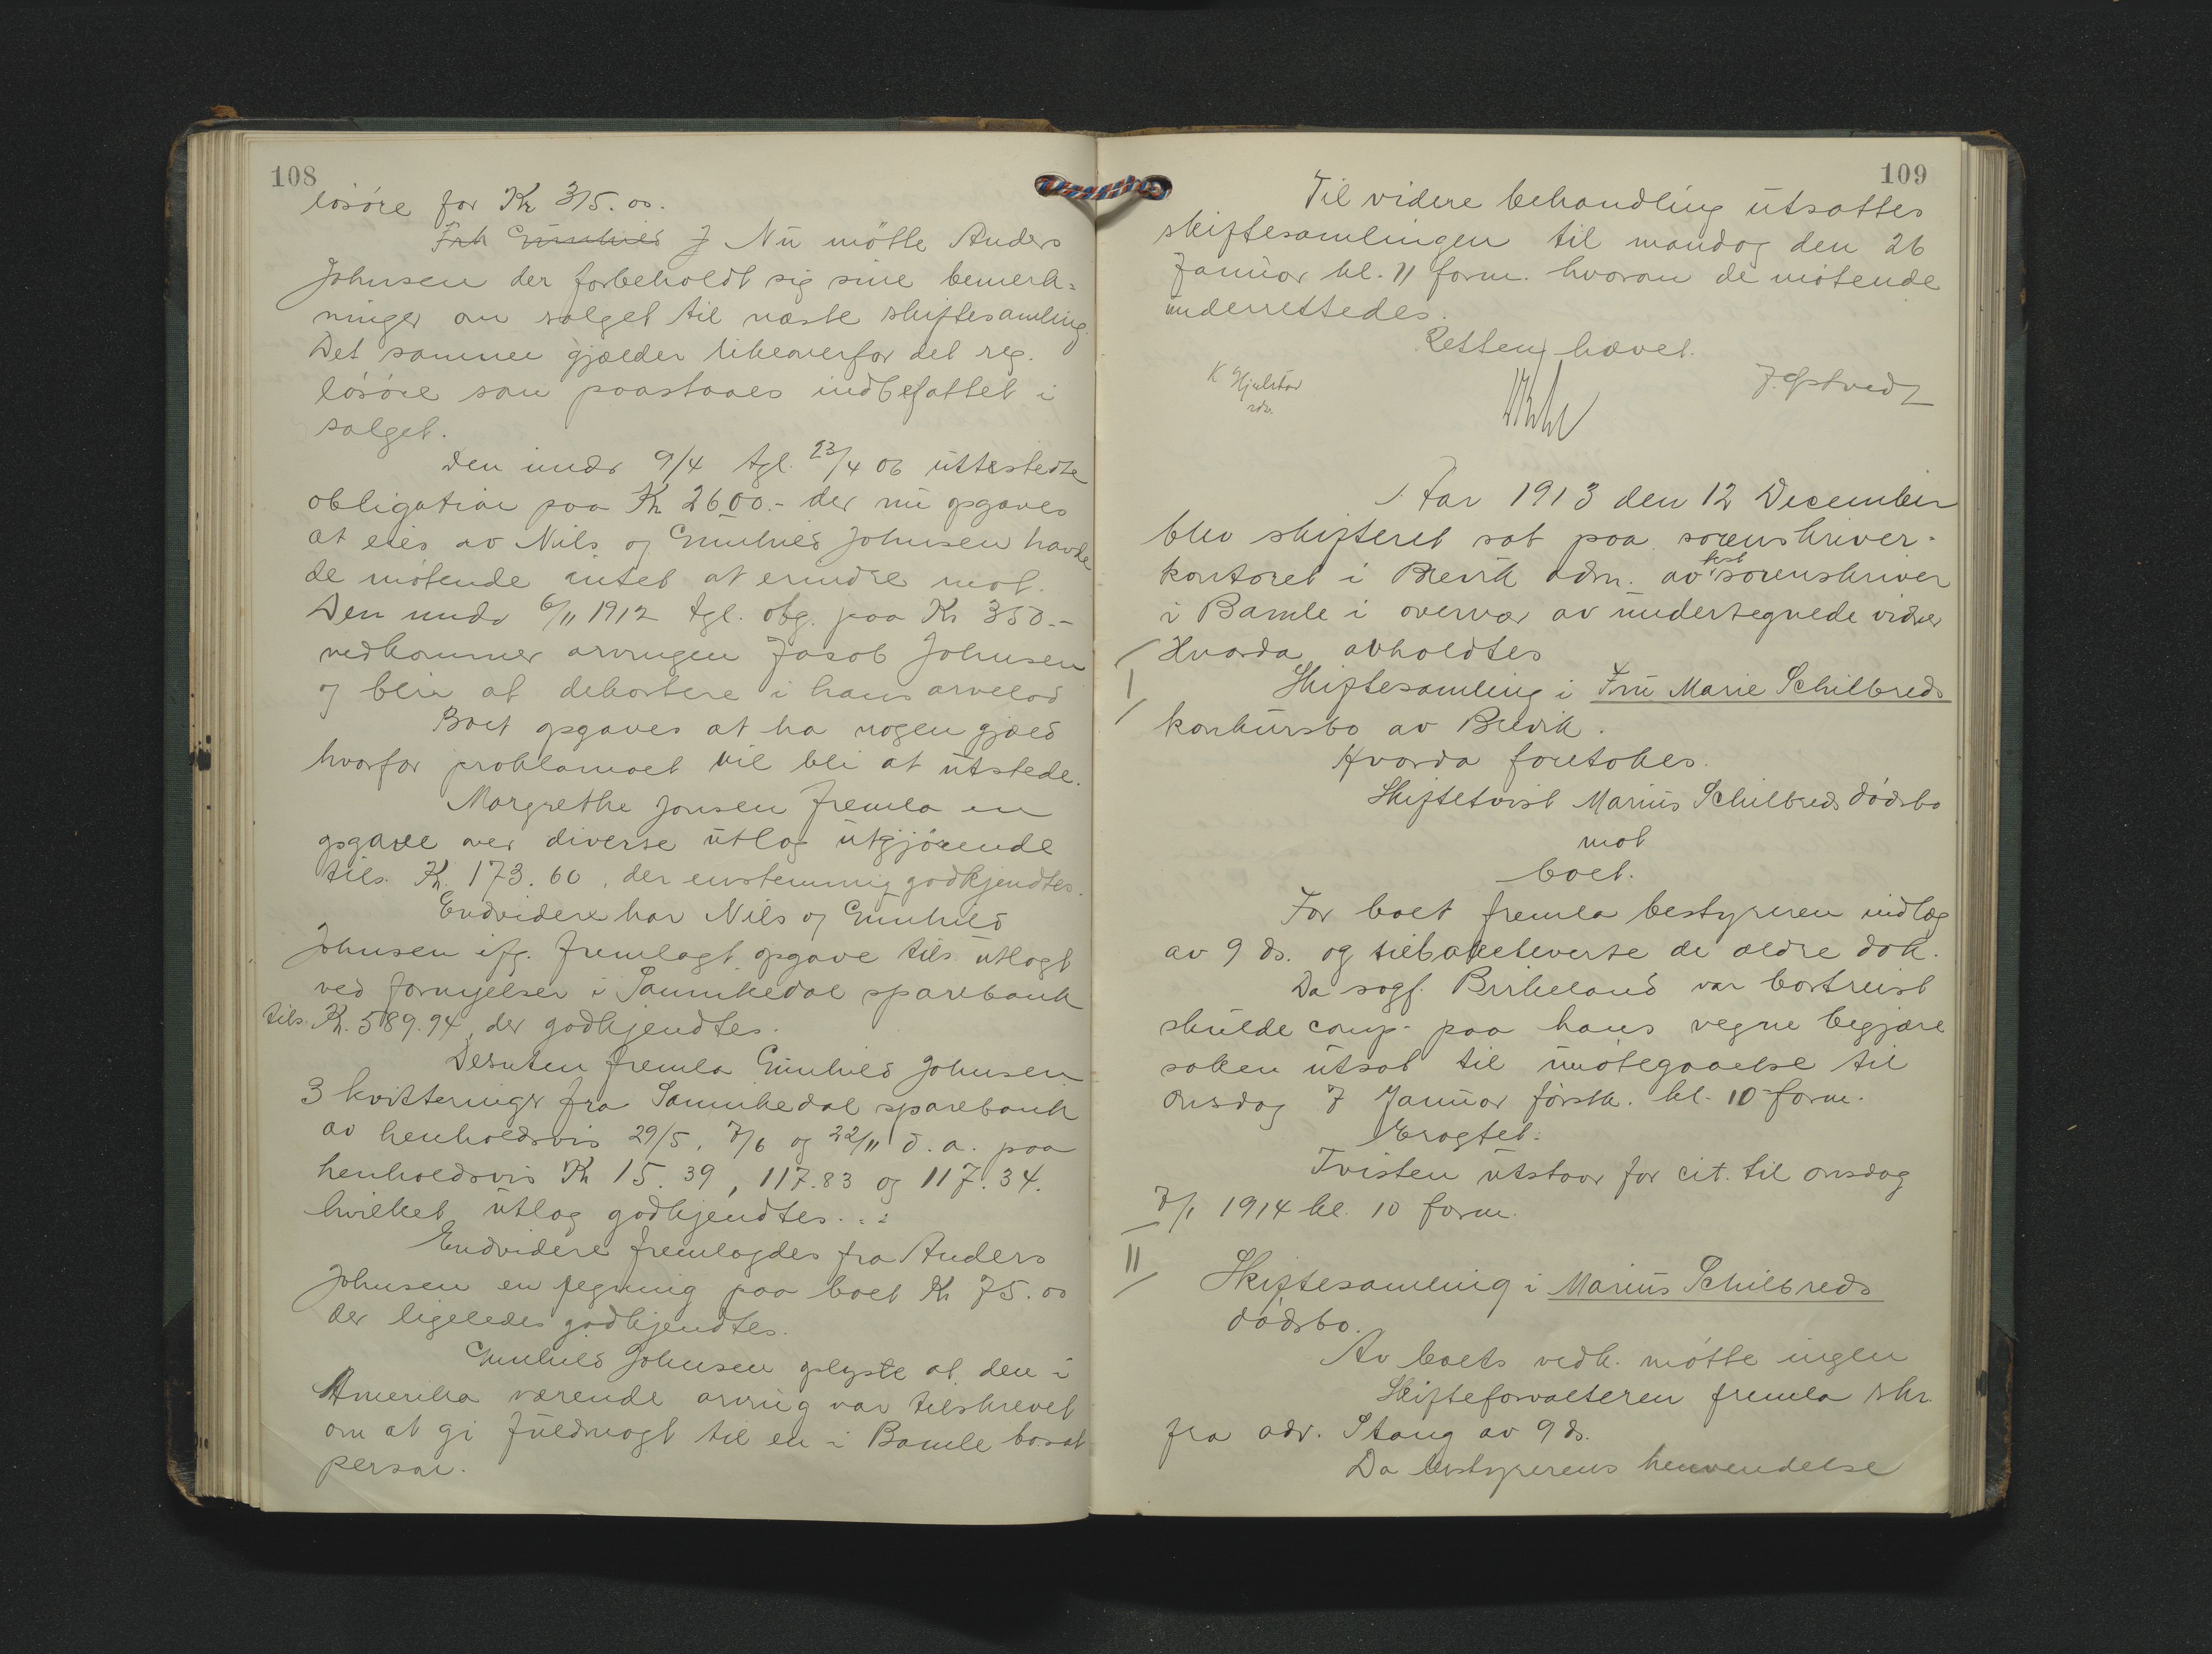 108
løsøre for Kr 315.00.
Frk Gunhild J Nu møtte Anders
Johnsen der forbeholdt sig sine bemerk-
ninger om salget til næste skiftesamling.
Det samme gjælder likeoverfor det reg.
løsøre som paastaaes indbefattet i
salget.
Den under 9/4 tgl. 23/4 06 utstedte
obligation paa Kr 2600.- der nu opgaves
at eies av Nils og Gunhild Johnsen havde
de møtende intet at erindre mot.
Den under 6/11 1912 tgl. obg. paa Kr 350.-
vedkommer arvingen Jacob Johnsen
og blir at dekortere i hans arvelod
Boet opgaves at ha nogen gjæld
hvorfor proklamaet vil bli at utstede.
Margrethe Jonsen fremla en
opgave over diverse utlæg utgjørende
tils. Kr. 173.60, der enstemmig godkjendtes.
Endvidere har Nils og Gunhild
Johnsen ifg. fremlagt opgave tils utlagt
ved fornyelser i Sannikedal sparebank
tils. Kr. 589.94, der godkjendtes.
Desuten fremla Gunhild Johnsen
3 kvitteringer fra Sannikedal sparebank
av henholdsvis 29/5, 7/6 og 22/11 d.a. paa
henholdsvis Kr 15.39, 117.83 og 117.34.
hvilket utlæg godkjendtes...
Endvidere fremlagdes fra Anders
Johnsen en regning paa boet Kr 75.00
der ligeledes godkjendtes.
Gunhild Johnsen oplyste at den i
Amerika værende arving var tilskrevet
om at gi fuldmagt til en i Bamle bosat
person.
109
Til videre behandling utsattes
skiftesamlingen til mandag den 26
Januar kl. 11 form. hvorom de møtende
underrettedes.
Retten hævet.
K Hjelstør
J. Opstved
Aar 1913 den 12 December
blev skifteret sat paa sorenskriver-
kontoret i Brevik adm. av best sorenskriver
i Bamle i overvær av undertegnede vidner
Hvorda avholdtes
I
Skiftesamling i Fru Marie Schilbreds
konkursbo av Brevik.
Hvorda foretokes.
Skiftetvist Marius Schilbreds dødsbo
mot
boet.
For boet fremla bestyreren indlæg
av 9 ds. og tilbakeleverte de ældre dok.
Da sagf. Birkeland var bortreist
skulde comp. paa hans vegne begjære
saken utsat til imøtegaaelse til
onsdag 7 Januar førstk. kl. 10 form.
Eragtet:
Tvisten utstaar for cit. til onsdag
7/1 1914 kl. 10 form.
II
Skiftesamling i Marius Schilbreds
dødsbo.
Av boets vedk. møtte ingen
Skifteforvalteren fremla skr.
fra adv. Stang av 9 ds.
Da bestyrerens henvendelse